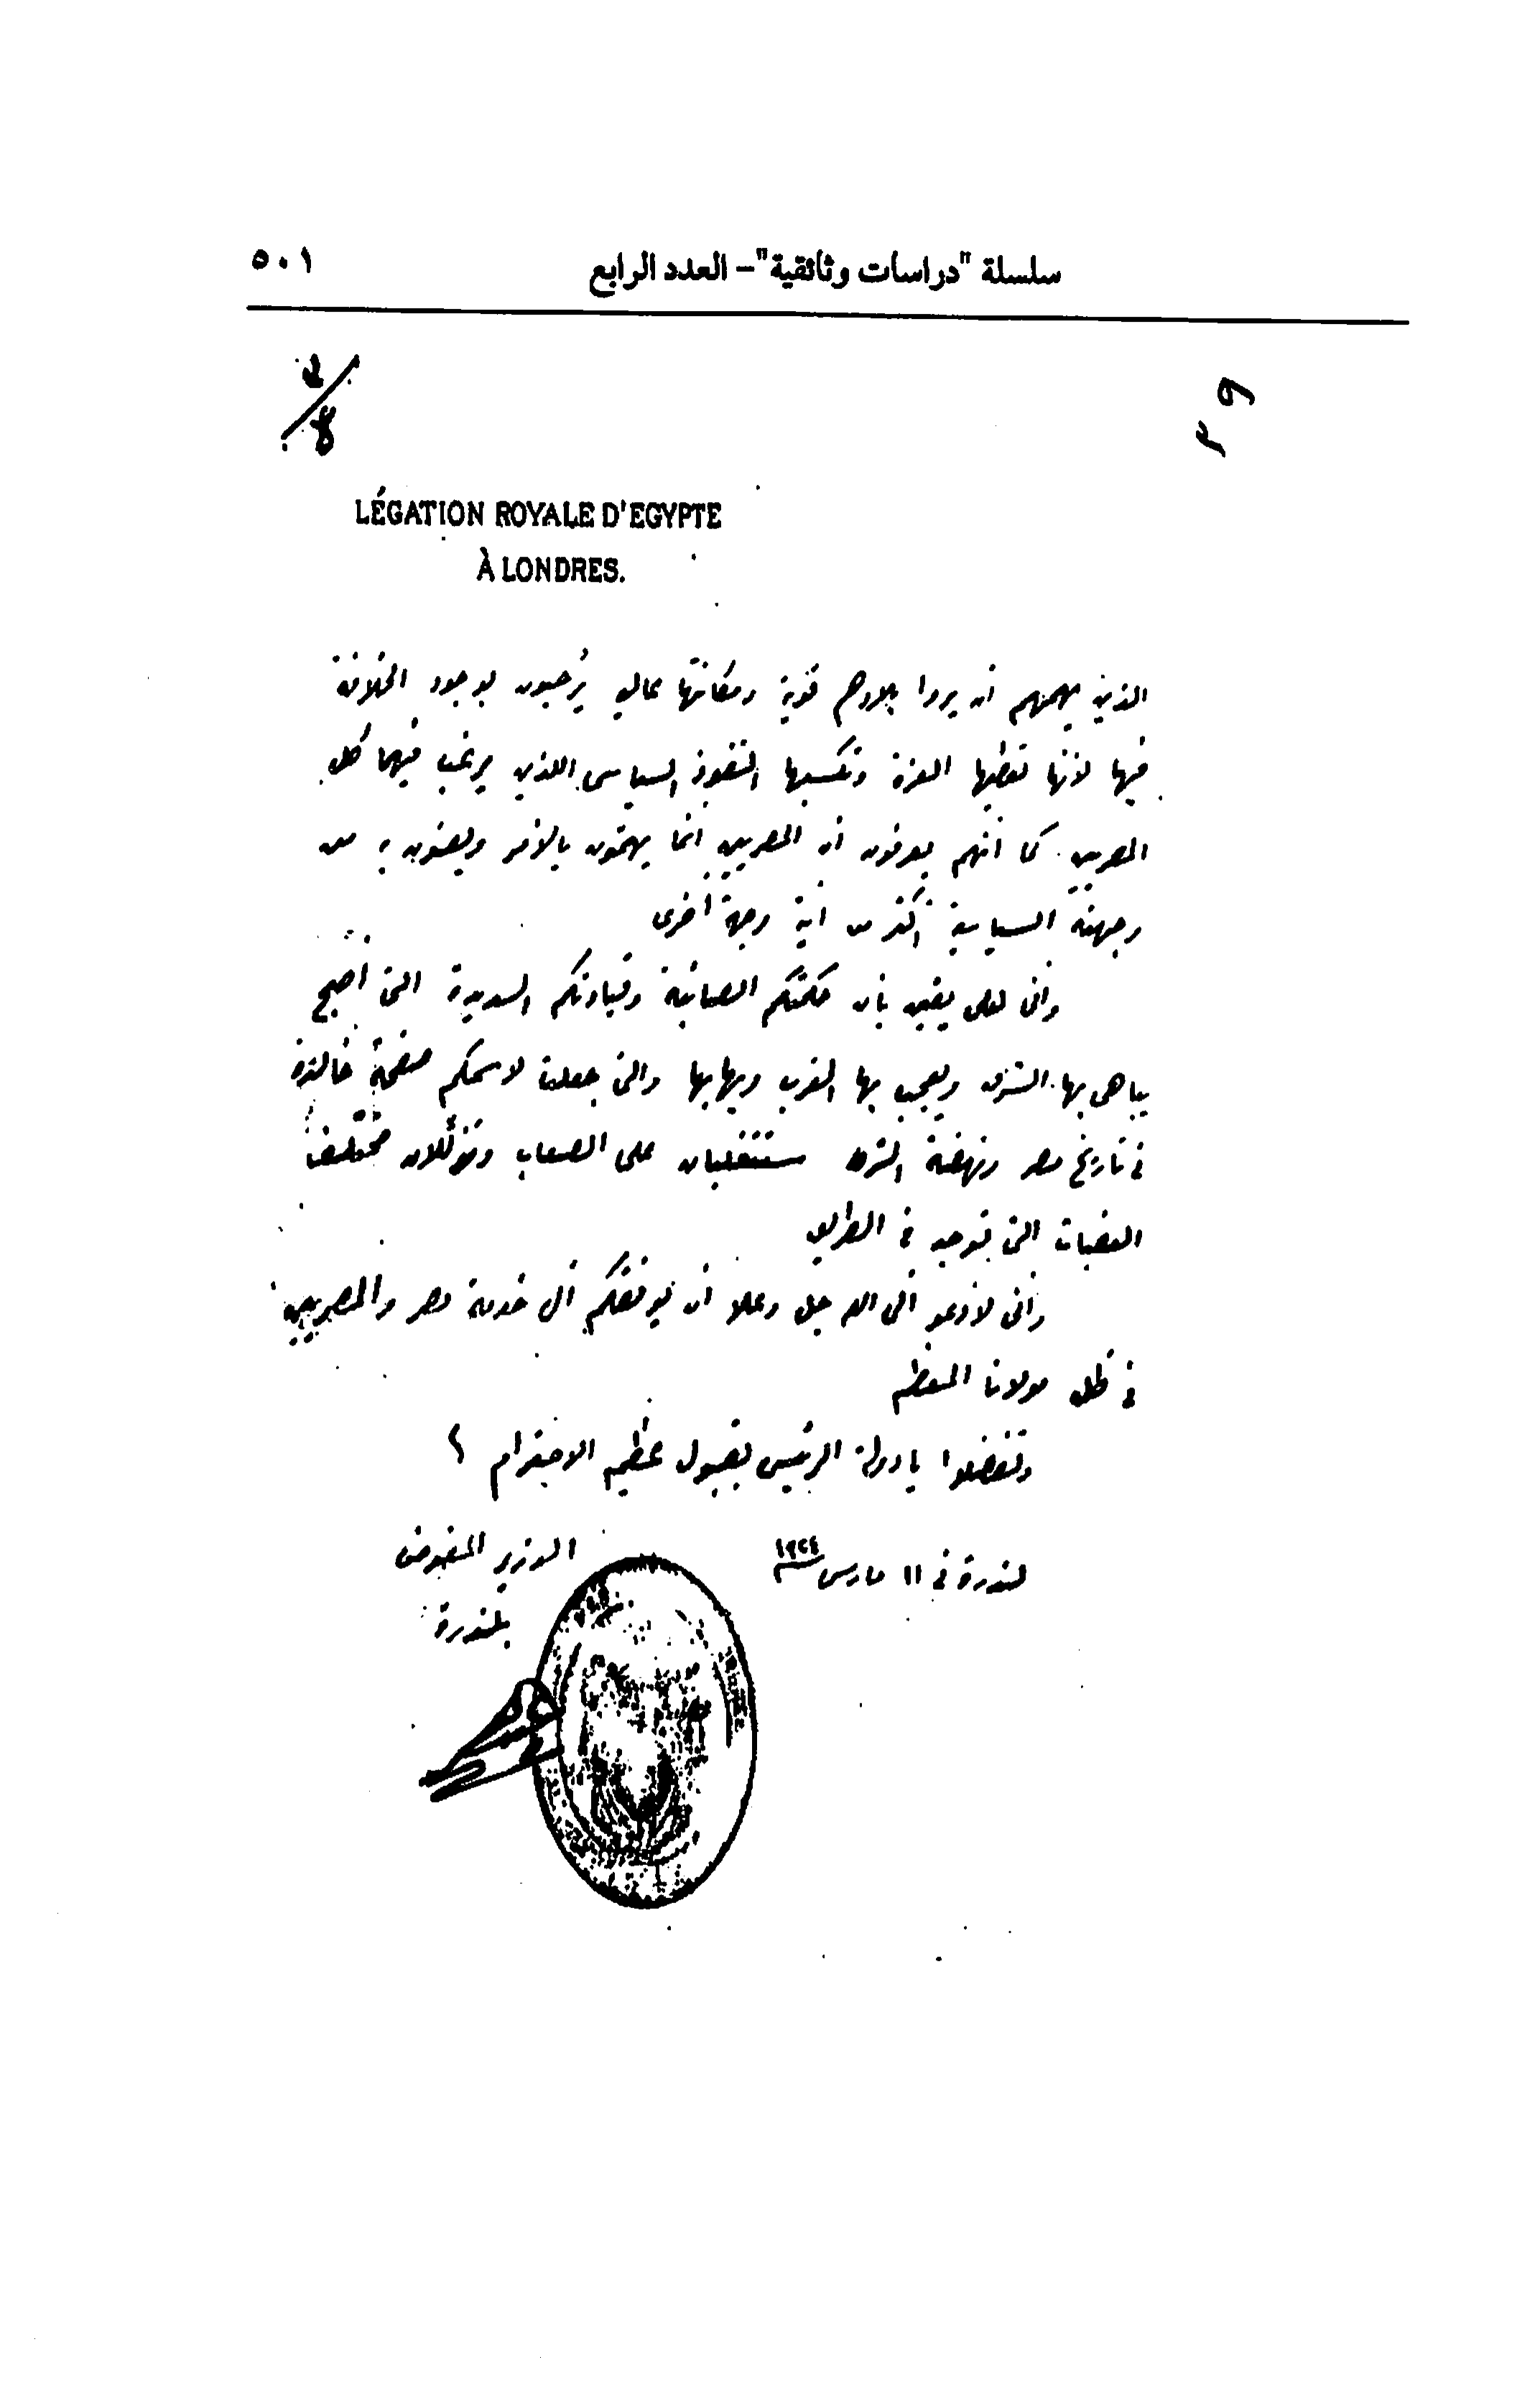 سلسلة "دراسات وثائقية"– العدد الرابع ٥٠١
٣٩
LÉGATION ROYALE D'EGYPTE
À LONDRES.
الذين يهمهم أن يروا بلادهم قوية ومكانتها عالية يُرحبون بوجود الخلافة
فيها لأنها تعطيها العزة وتكسبها النفوذ السياسى اللذين يرغب فيهما كل
المصريين. كما أنهم يعرفون أن المصريين انما يهتمون بالأمر ويعنون به من
وجهته السياسية أكثر من أية وجهة أخرى
وانى لعلى يقين بأن حكمتكم الصائبة وقيادتكم السديدة التى أصبح
يباهى بها الشرق ويعجب بها الغرب ويهابها والتى جعلت لاسمكم صفحة خالدة
فى تاريخ مصر ونهضة الشرق ستتغلبان على الصعاب وتذللان مختلف
العقبات التى توجد فى الطريق
وانى لأدعو الى الله جل وعلا أن يوفقكم الى خدمة مصر والمصريين
فى ظل مولانا المعظم
وتفضلوا يا دولة الرئيس بقبول عظيم الاحترام
لندرة فى ١١ مارس ١٩٢٤
الوزير المفوض
بلندرة